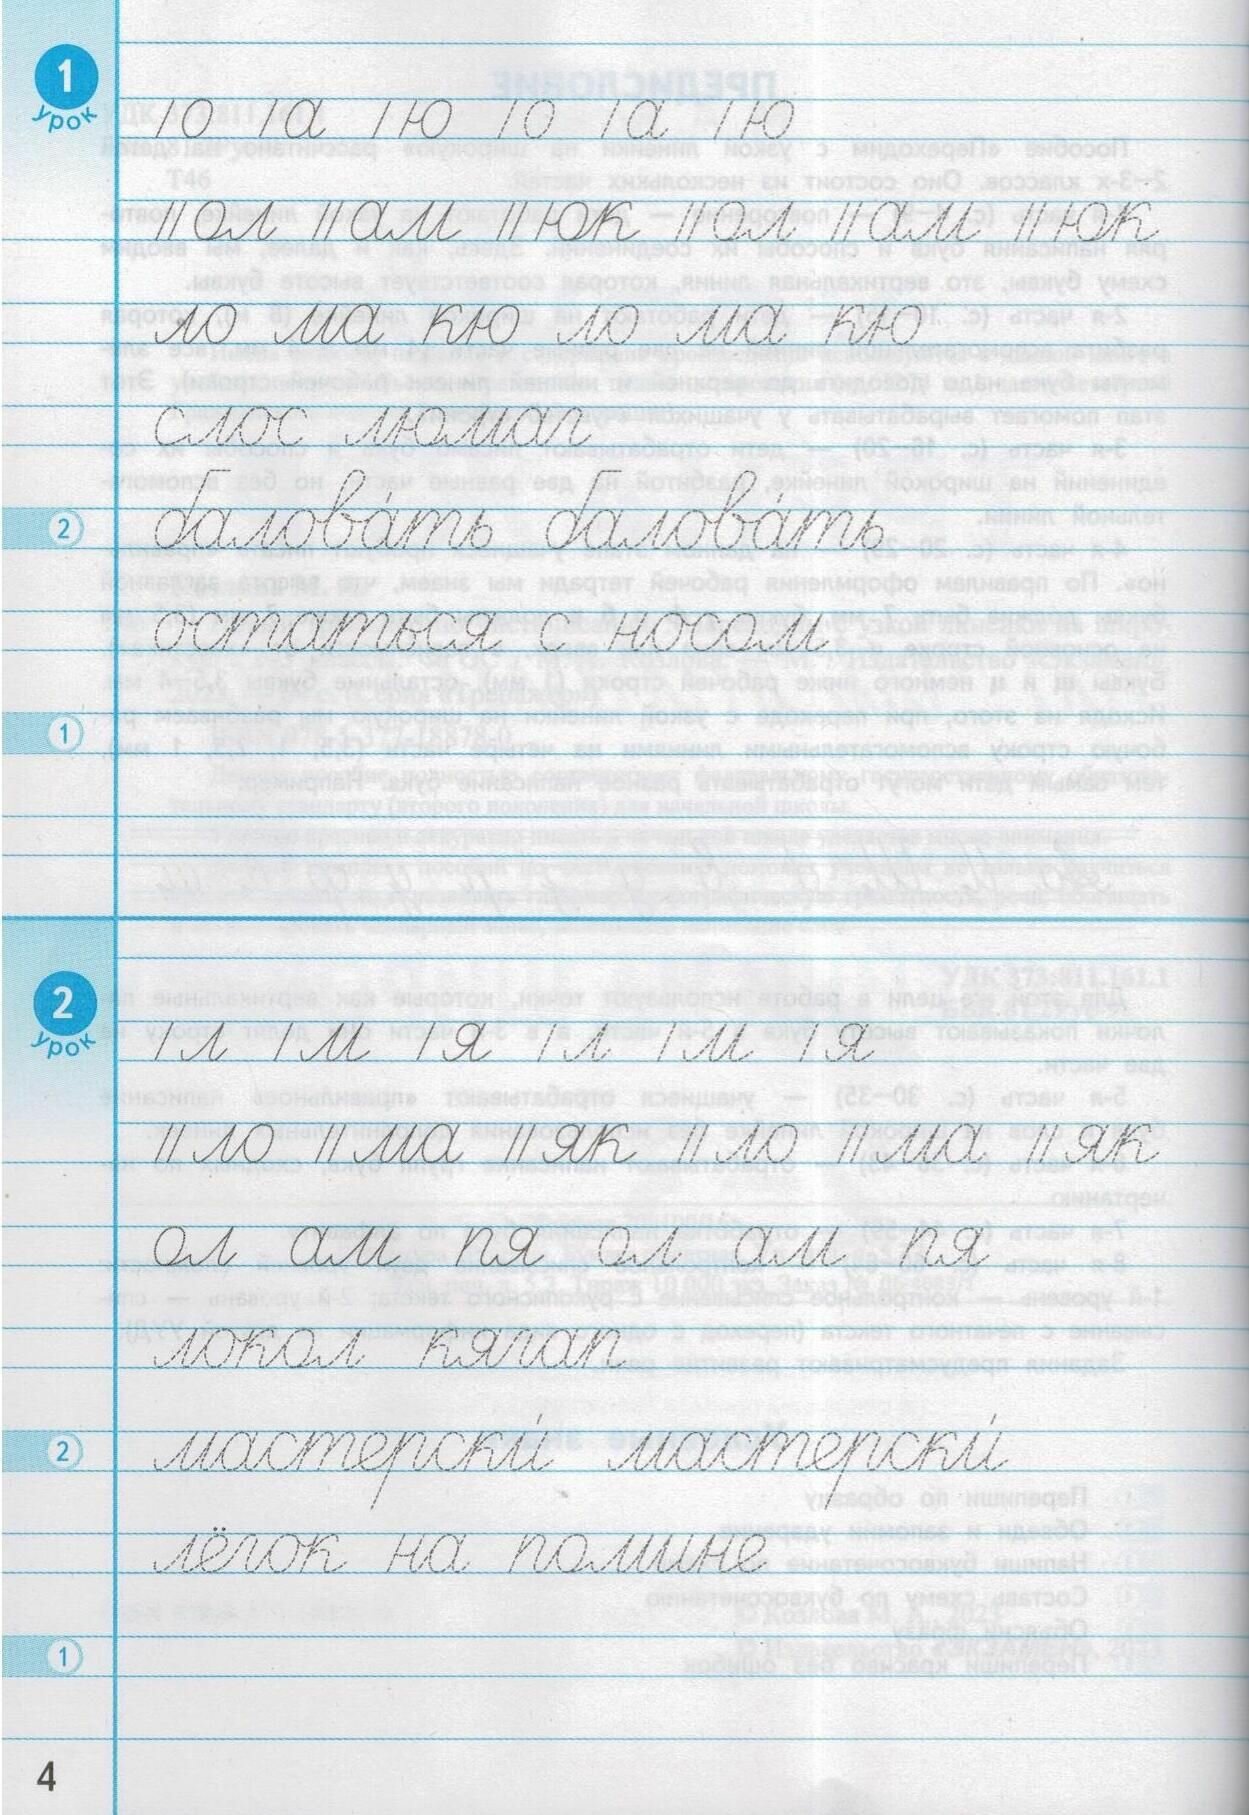 1
урок
|о |а |ю |о |а |ю
||ол ||ам ||юк ||ол ||ам ||юк
ло ма кю ло ма кю
слос люмаг
2
балова́ть балова́ть
остаться с носом
1
2
урок
|л |м |я |л |м |я
||ло ||ма ||як ||ло ||ма ||як
ол ам пя ол ам пя
локол кягап
2
мастерски́ мастерски́
лёгок на помине
1
4